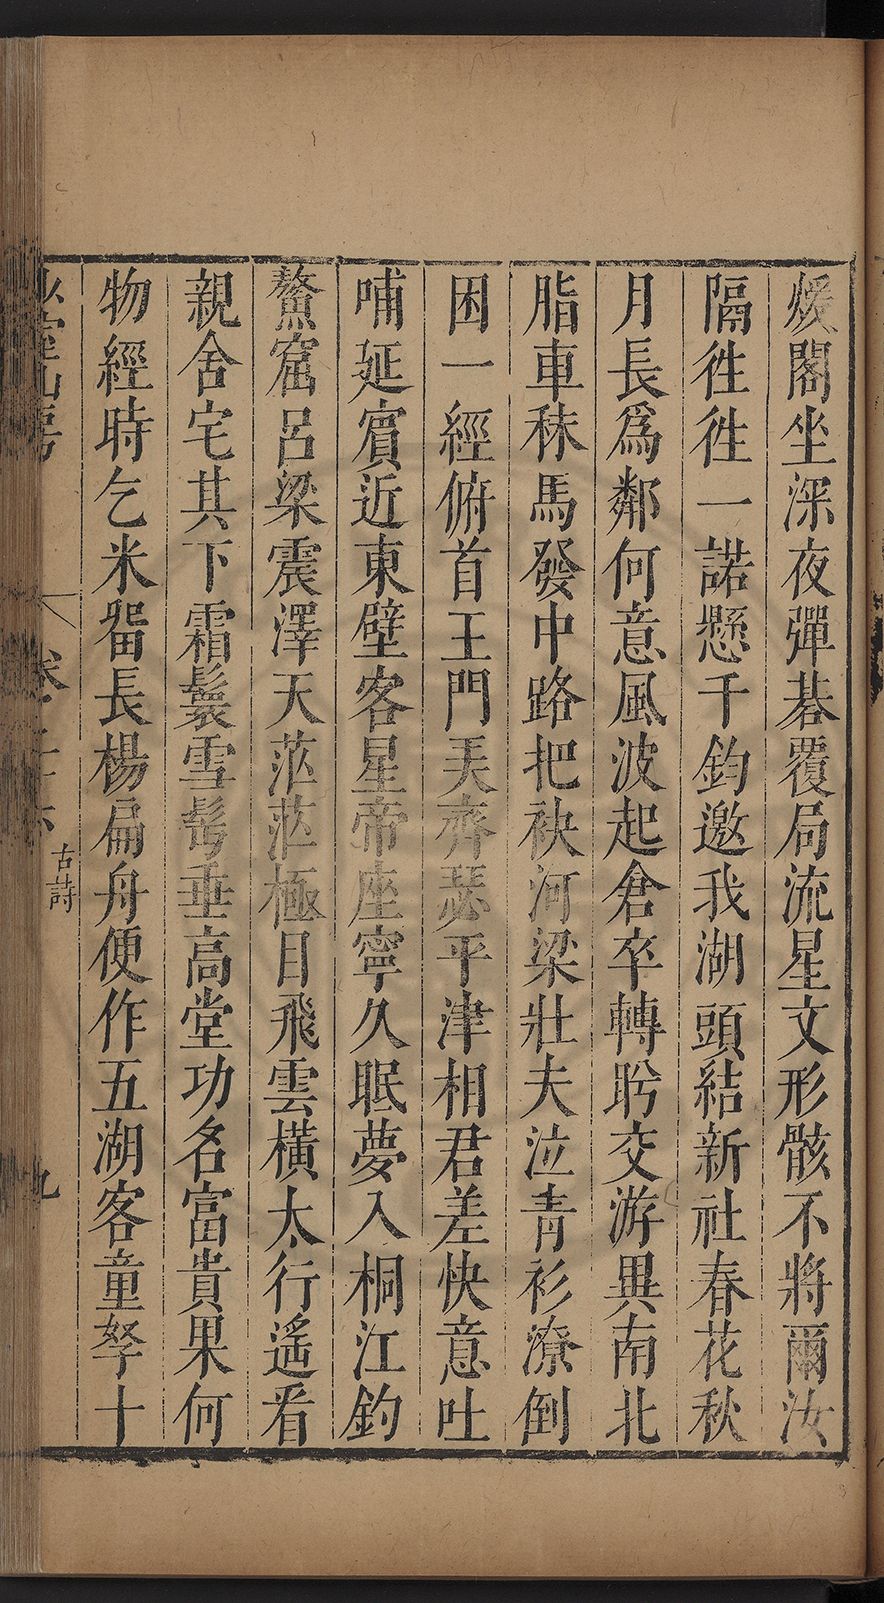 煖閣坐深夜彈碁覆局流星文形骸不將爾汝
隔徃徃一諾懸千鈞邀我湖頭結新社春花秋
月長爲鄰何意風波起倉卒轉盻交游異南北
脂車秣馬發中路把袂河梁壯夫泣青衫潦倒
困一經俯首王門羙齊瑟平津相君差快意吐
哺延賓近東壁客星帝座寧久眠夢入桐江釣
鰲窟呂梁震澤天茳茳極目飛雲橫太行遙看
親舍宅其下霜鬟雪髩垂高堂功名富貴果何
物經時乞米畱長楊扁舟便作五湖客童孥十
古詩
九